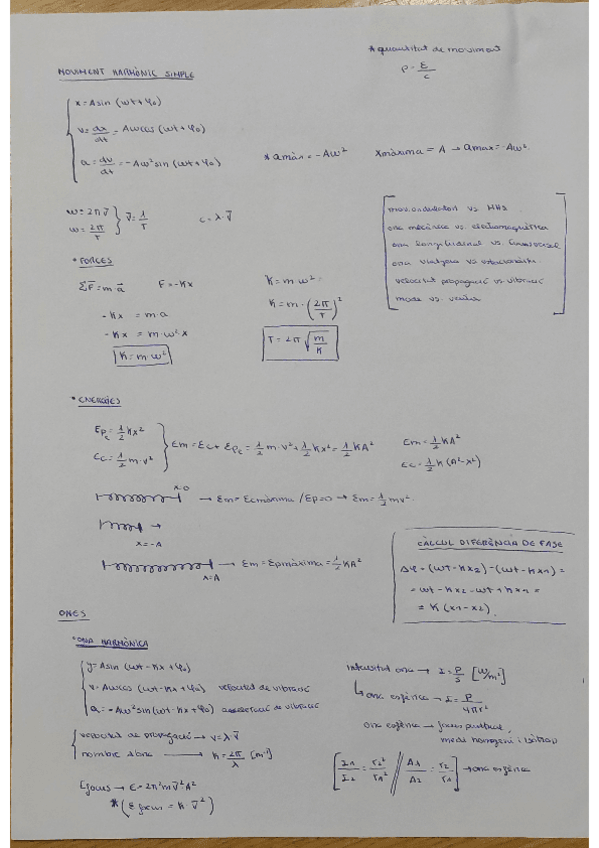 * quantitat de moviment
P = E/c
MOVIMENT HARMÒNIC SIMPLE
x = A sin (ωt + φ₀)
v = dx/dt = Aω cos (ωt + φ₀)
a = dv/dt = -Aω² sin (ωt + φ₀)
* a màx = -Aω²
Xmàxima = A → a max = -Aω²
ω = 2π ν̄
ω = 2π/T
ν̄ = 1/T
c = λ·ν̄
mov. ondulatori vs MHS
ona mecànica vs. electromagnètica
ona longitudinal vs. transversal
ona viatgera vs estacionària
velocitat propagació vs vibració
node vs. ventre
* FORCES
ΣF = m·a
F = -Kx
-Kx = m·a
-Kx = m·ω²x
K = m·ω²
K = m·ω² =
K = m·(2π/T)²
T = 2π √(m/K)
* ENERGIES
Epc = 1/2 Kx²
Ec = 1/2 m·v²
Em = Ec + Epc = 1/2 m·v² + 1/2 Kx² = 1/2 KA²
Em = 1/2 KA²
Ec = 1/2 K (A²-x²)
x=0
→ Em = Ecmàxima / Ep=0 → Em = 1/2 mv²
x=-A
→ Em = Epmàxima = 1/2 KA²
x=A
CÀLCUL DIFERÈNCIA DE FASE
Δφ = (ωt-Kx₂) - (ωt-Kx₁) =
= ωt - Kx₂ - ωt + Kx₁ =
= K (x₁-x₂)
ONES
* ONA HARMÒNICA
y = A sin (ωt - Kx + φ₀)
v = Aω cos (ωt - Kx + φ₀) velocitat de vibració
a = -Aω² sin (ωt - Kx + φ₀) acceleració de vibració
velocitat de propagació → v = λ·ν̄
nombre d'ona → K = 2π/λ [m⁻¹]
E focus → E = 2π² m ν̄² A²
* (E focus = K·ν̄²)
Intensitat ona → I = P/S [W/m²]
↳ ona esfèrica → I = P/4πr²
ona esfèrica → focus puntual,
medi homogeni i isòtrop
[I₁/I₂ = r₂²/r₁² // A₁/A₂ = r₂/r₁] → ona esfèrica